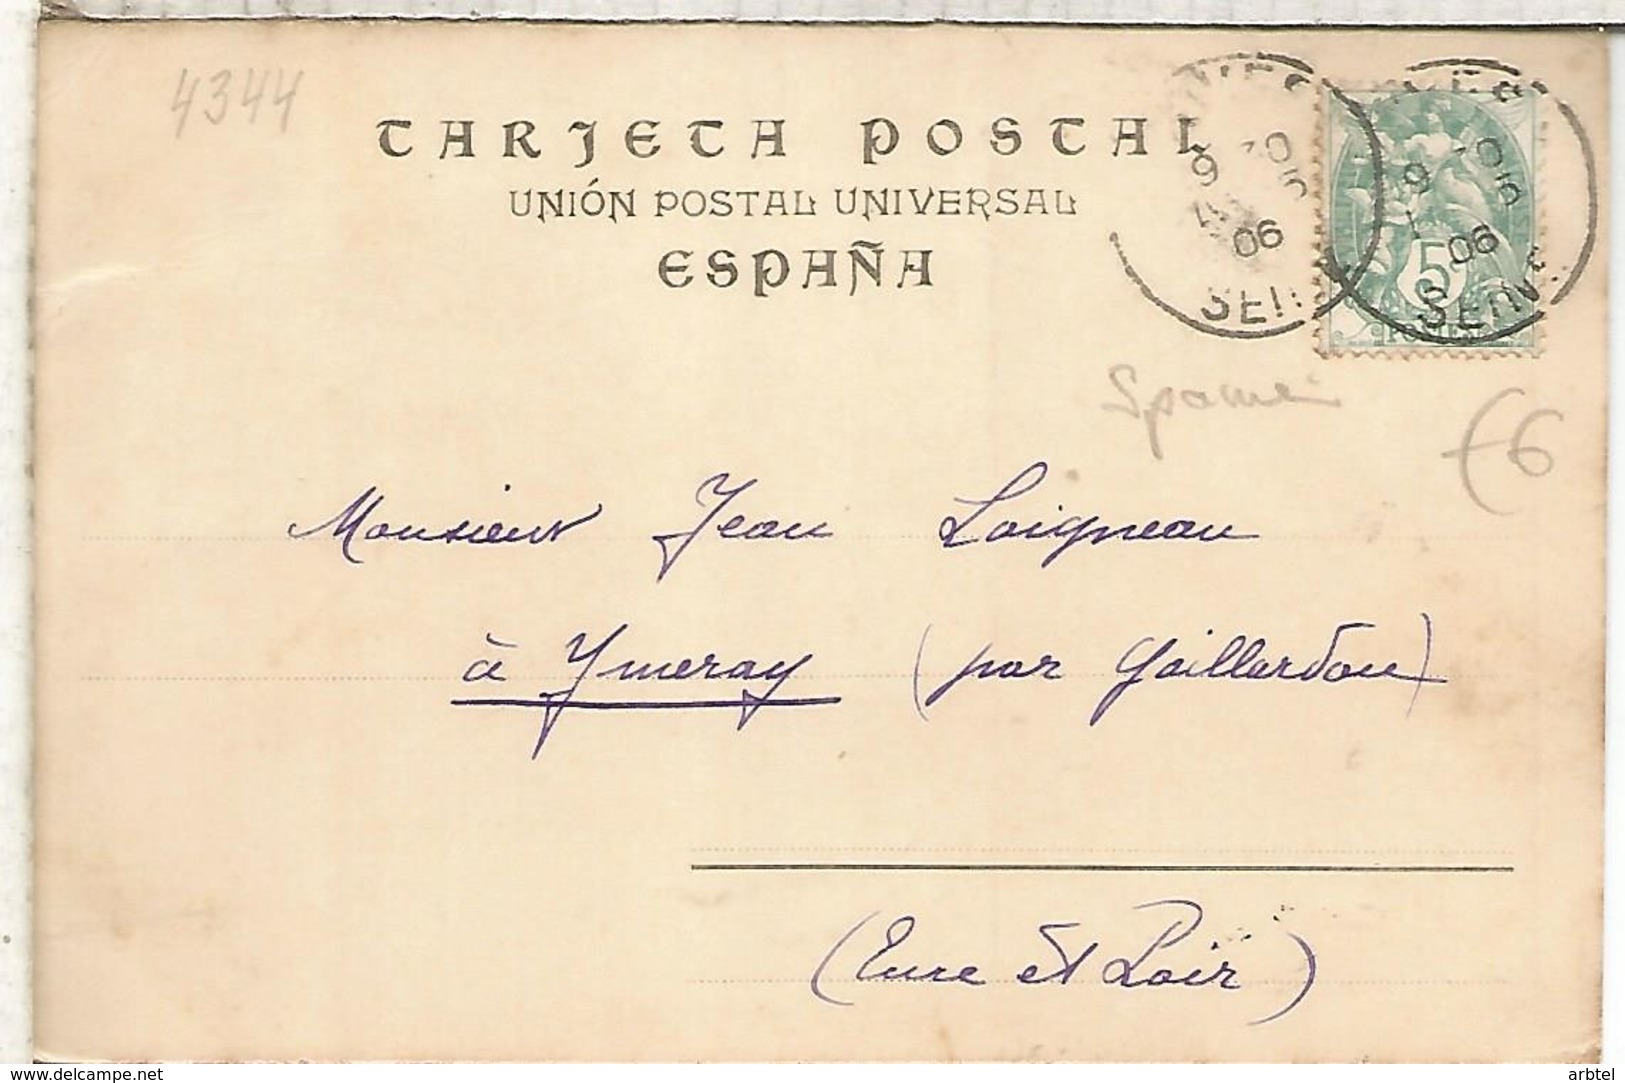 4344
TARJETA POSTAL
UNIÓN POSTAL UNIVERSAL
ESPAÑA
9 30
06
SEINE
9 30
06
SEINE
5
POSTES
6
Monsieur Jean Loigneau
à Ymeray (par Gaillardon)
(Eure et Loir)
www.delcampe.net
arbtel